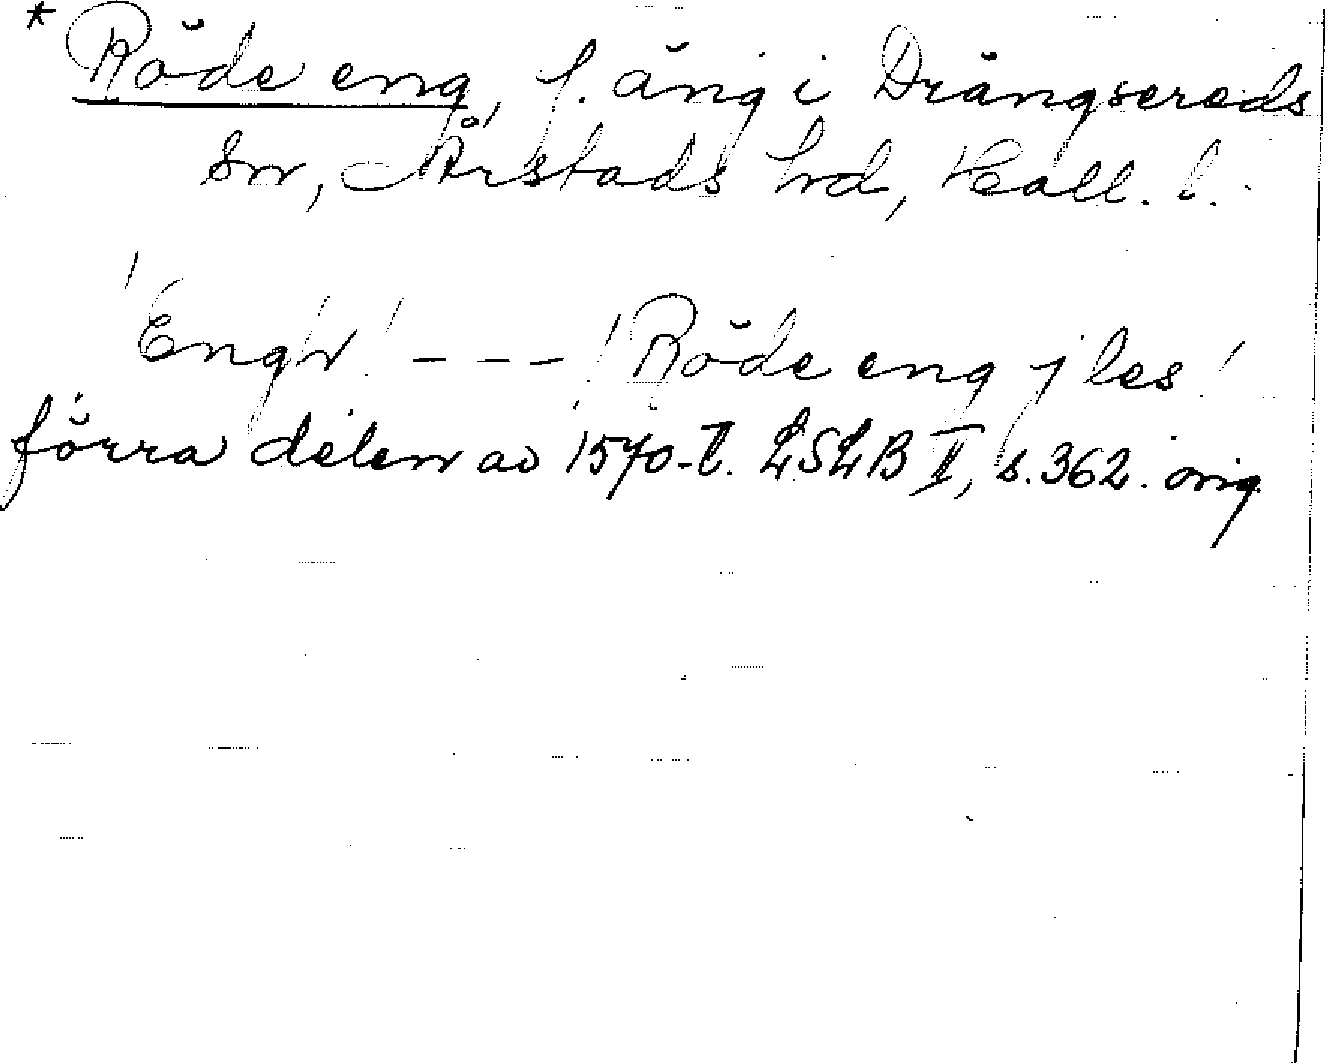 * Röde eng, f. äng i Drängsereds
sn, Årstads hd, Hall. l.
"Engh" --- "Röde eng j les"
förra delen av 1570-t. LSLB II, s. 362. orig.